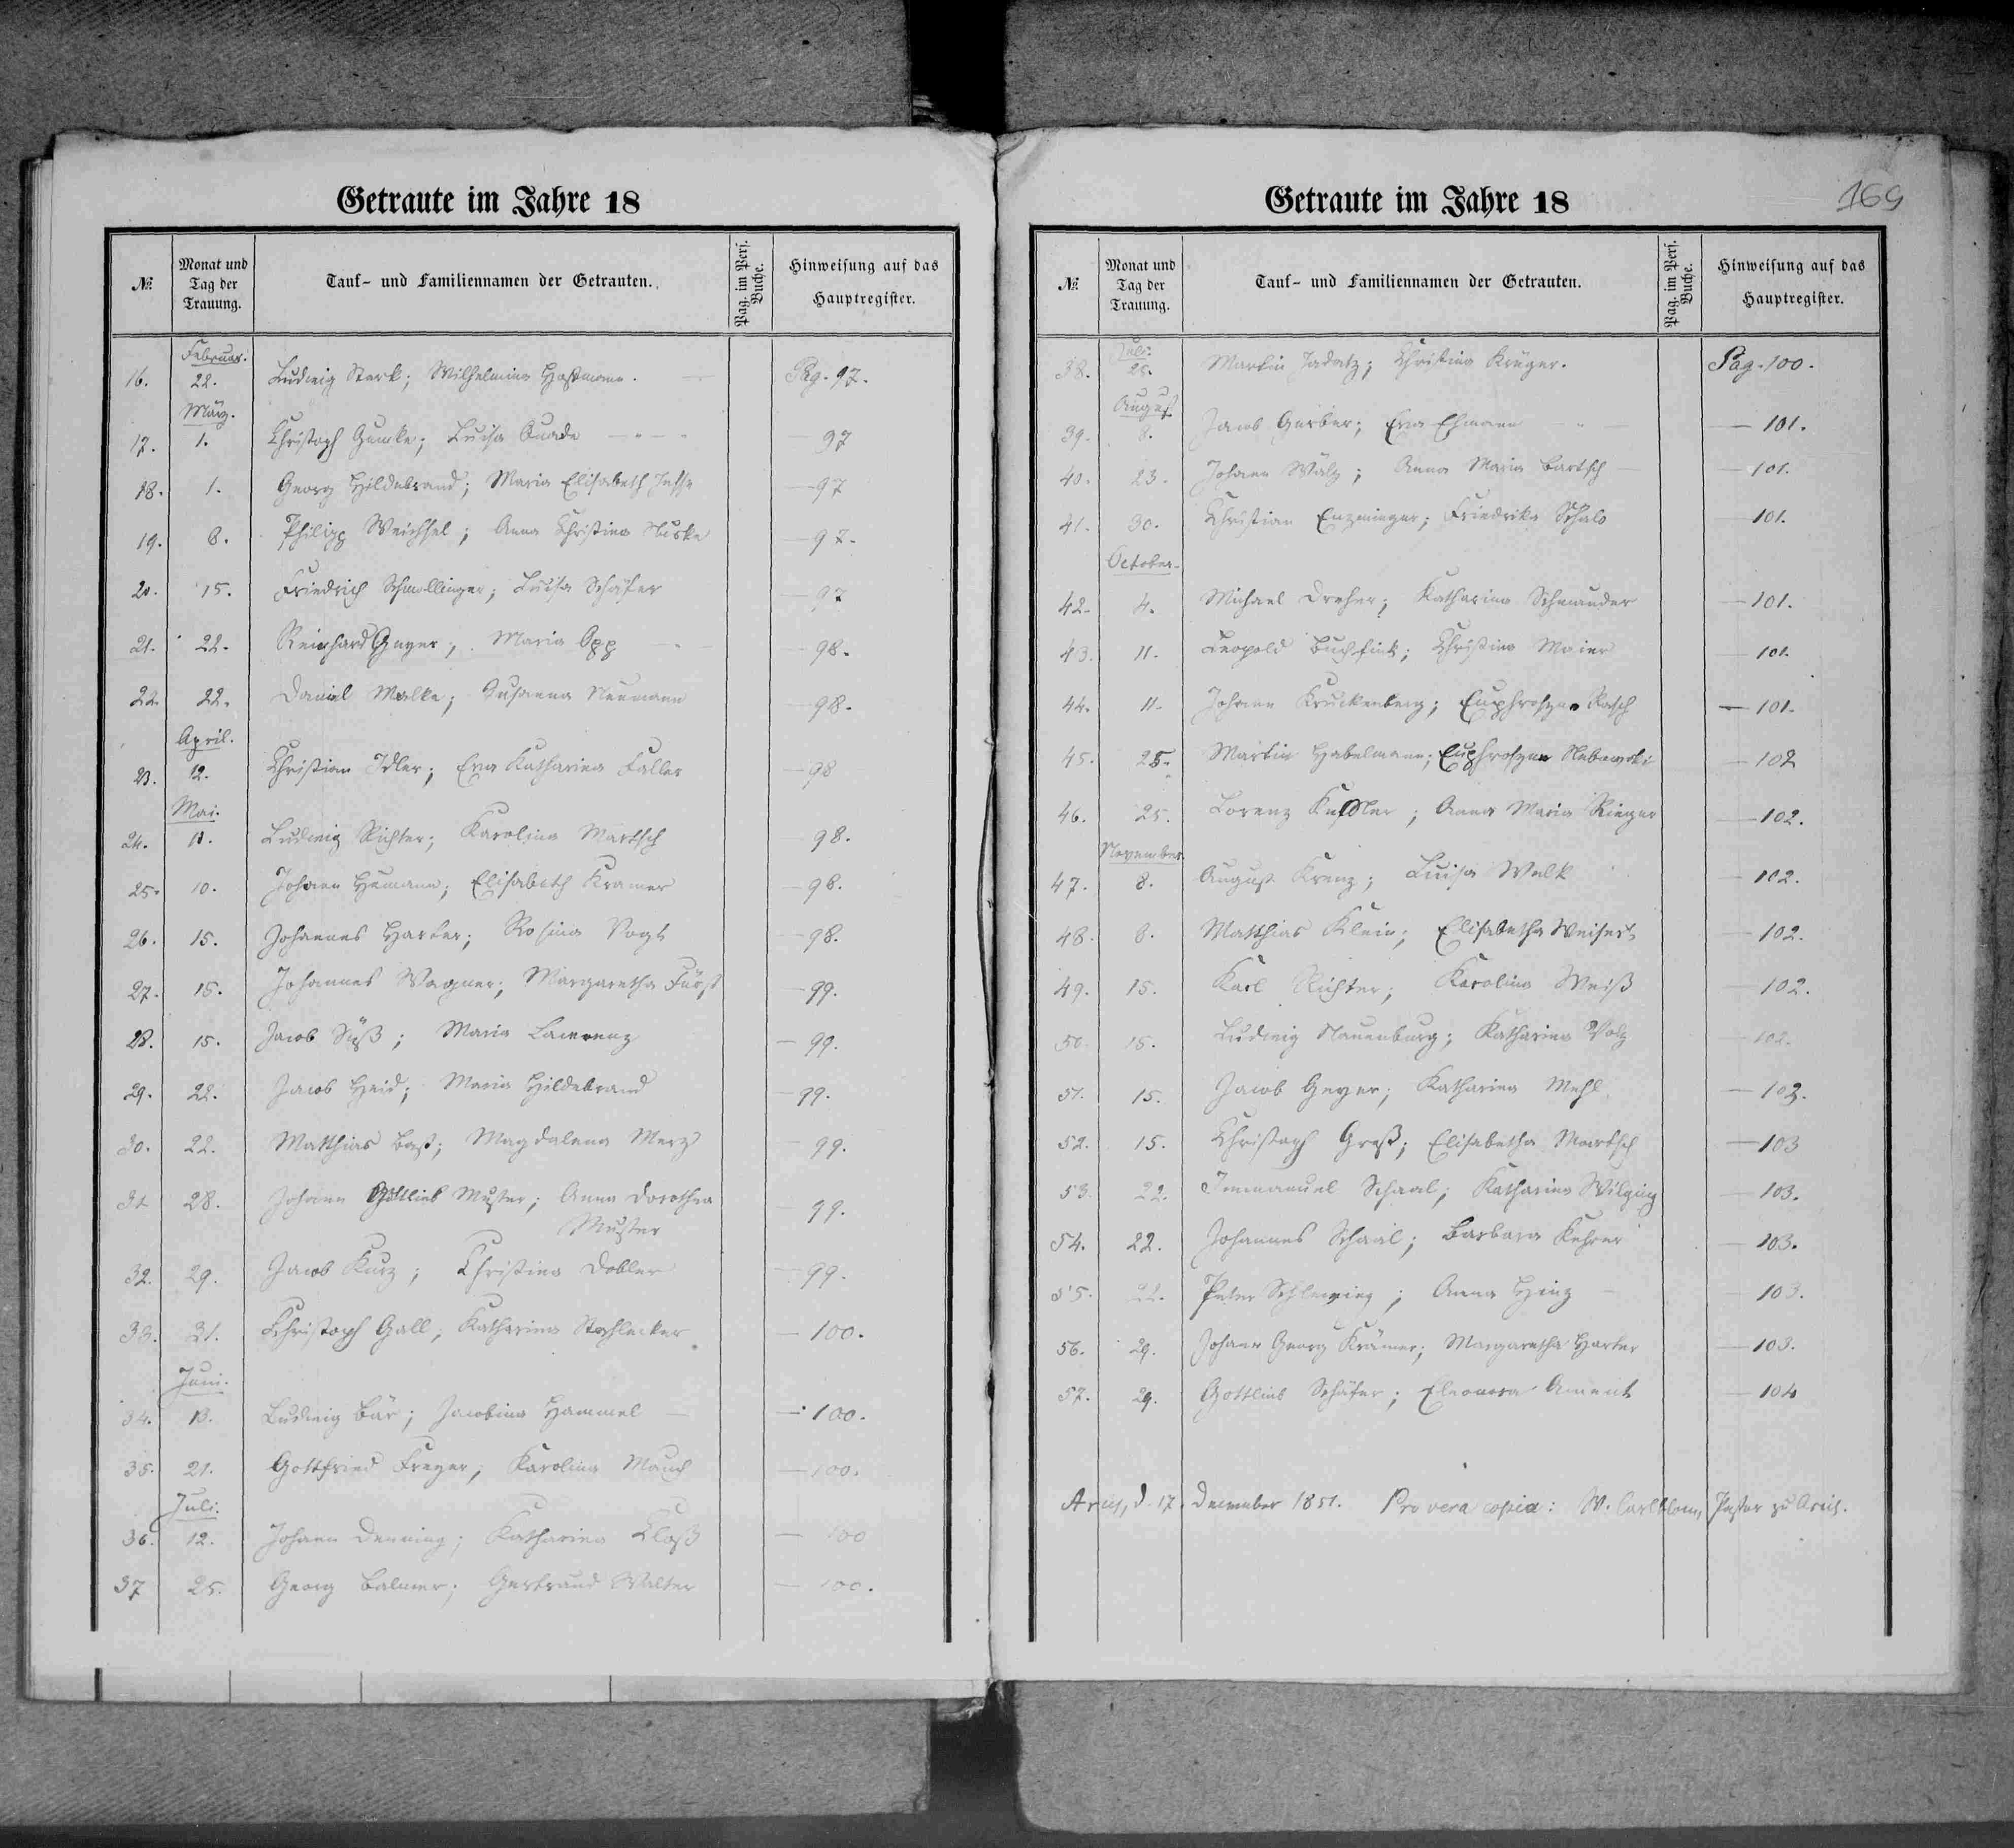 Getraute im Jahre 18
№
Monat und
Tag der
Trauung.
Tauf- und Familiennamen der Getrauten.
Pag. im Pers.
Buche.
Hinweisung auf das
Hauptregister.
Februar.
16. 22. Ludwig Stark; Wilhelmina Hoffmann. Pag. 97.
März.
17. 1. Christoph Gumke; Luisa Quade — 97
18. 1. Georg Hildebrand; Maria Elisabeth — 97
19. 8. Philipp Weichsel; Anna Christina — 97.
20. 15. Friedrich Schmollinger; Luisa Schäfer — 97
21. 22. Reinhard Geyer; Maria Opp — 98.
22. 22. Daniel Malke; Susanna Neumann — 98.
April.
23. 12. Christian Idler; Eva Katharina Faller — 98
Mai.
24. Ludwig Richter; Karolina Martsch — 98.
25. 10. Johann Humann; Elisabeth Kramer — 98.
26. 15. Johannes Harter; Rosina Vogt — 98.
27. 15. Johannes Wagner; Margaretha Fürst — 99.
28. 15. Jacob Süß; Maria Lawrenz — 99.
29. 22. Jacob Heid; Maria Hildebrand — 99.
30. 22. Matthias Bast; Magdalena Merz — 99.
31. 28. Johann Gottlieb Muster; Anna Dorothea
Muster — 99.
32. 29. Jacob Kurz; Christina Dobler — 99.
33. 31. Christoph Gall; Katharina Stahlecker — 100.
Juni.
34. 13. Ludwig Bär; Jacobina Hammel — 100.
35. 21. Gottfried Freyer; Karolina Mauch — 100.
Juli.
36. 12. Johann Denning; Katharina Kloß — 100
37 25. Georg Balmer; Gertraud Walter — 100.
Getraute im Jahre 18
169
№
Monat und
Tag der
Trauung.
Tauf- und Familiennamen der Getrauten.
Pag. im Pers.
Buche.
Hinweisung auf das
Hauptregister.
Juli.
38. 25. Martin Jadatz; Christina Krüger. Pag. 100.
August
39. 8. Jacob Gerber; Eva Ehmann — 101.
40. 23. Johann Wälz; Anna Maria Bartsch — 101.
41. 30. Christian Enzminger; Friedrika Schalo 101.
October.
42. 4. Michael Dreher; Katharina Schnauder — 101.
43. 11. Leopold Buchfink; Christina Maier — 101.
44. 11. Johann Kruckenberg; Euphrosyne Rasch — 101.
45. 25. Martin Habelmann; Euphrosyne — 102
46. 25. Lorenz Keßler; Anna Maria Rieger — 102.
November.
47. 8. August Krenz; Luisa Walk — 102.
48. 8. Matthias Klein; Elisabetha Weisert — 102.
49. 15. Karl Richter; Karolina Weiß — 102.
50. 15. Ludwig Nauenburg; Katharina Volz — 102.
51. 15. Jacob Geyer; Katharina Mehl. — 102.
52. 15. Christoph Groß; Elisabetha Martsch — 103
53. 22. Immanuel Schaal; Katharina Wilging — 103.
54. 22. Johannes Schaal; Barbara Kehrer — 103.
55. 22. Peter Anna Hinz — 103.
56. 29. Johann Georg Krämer; Margaretha Harter — 103.
57. 29. Gottlieb Schäfer; Eleonora Ament — 104
Arcis, d. 17. December 1851. Pro vera copia: W. Carlblom, Pastor zu Arcis.